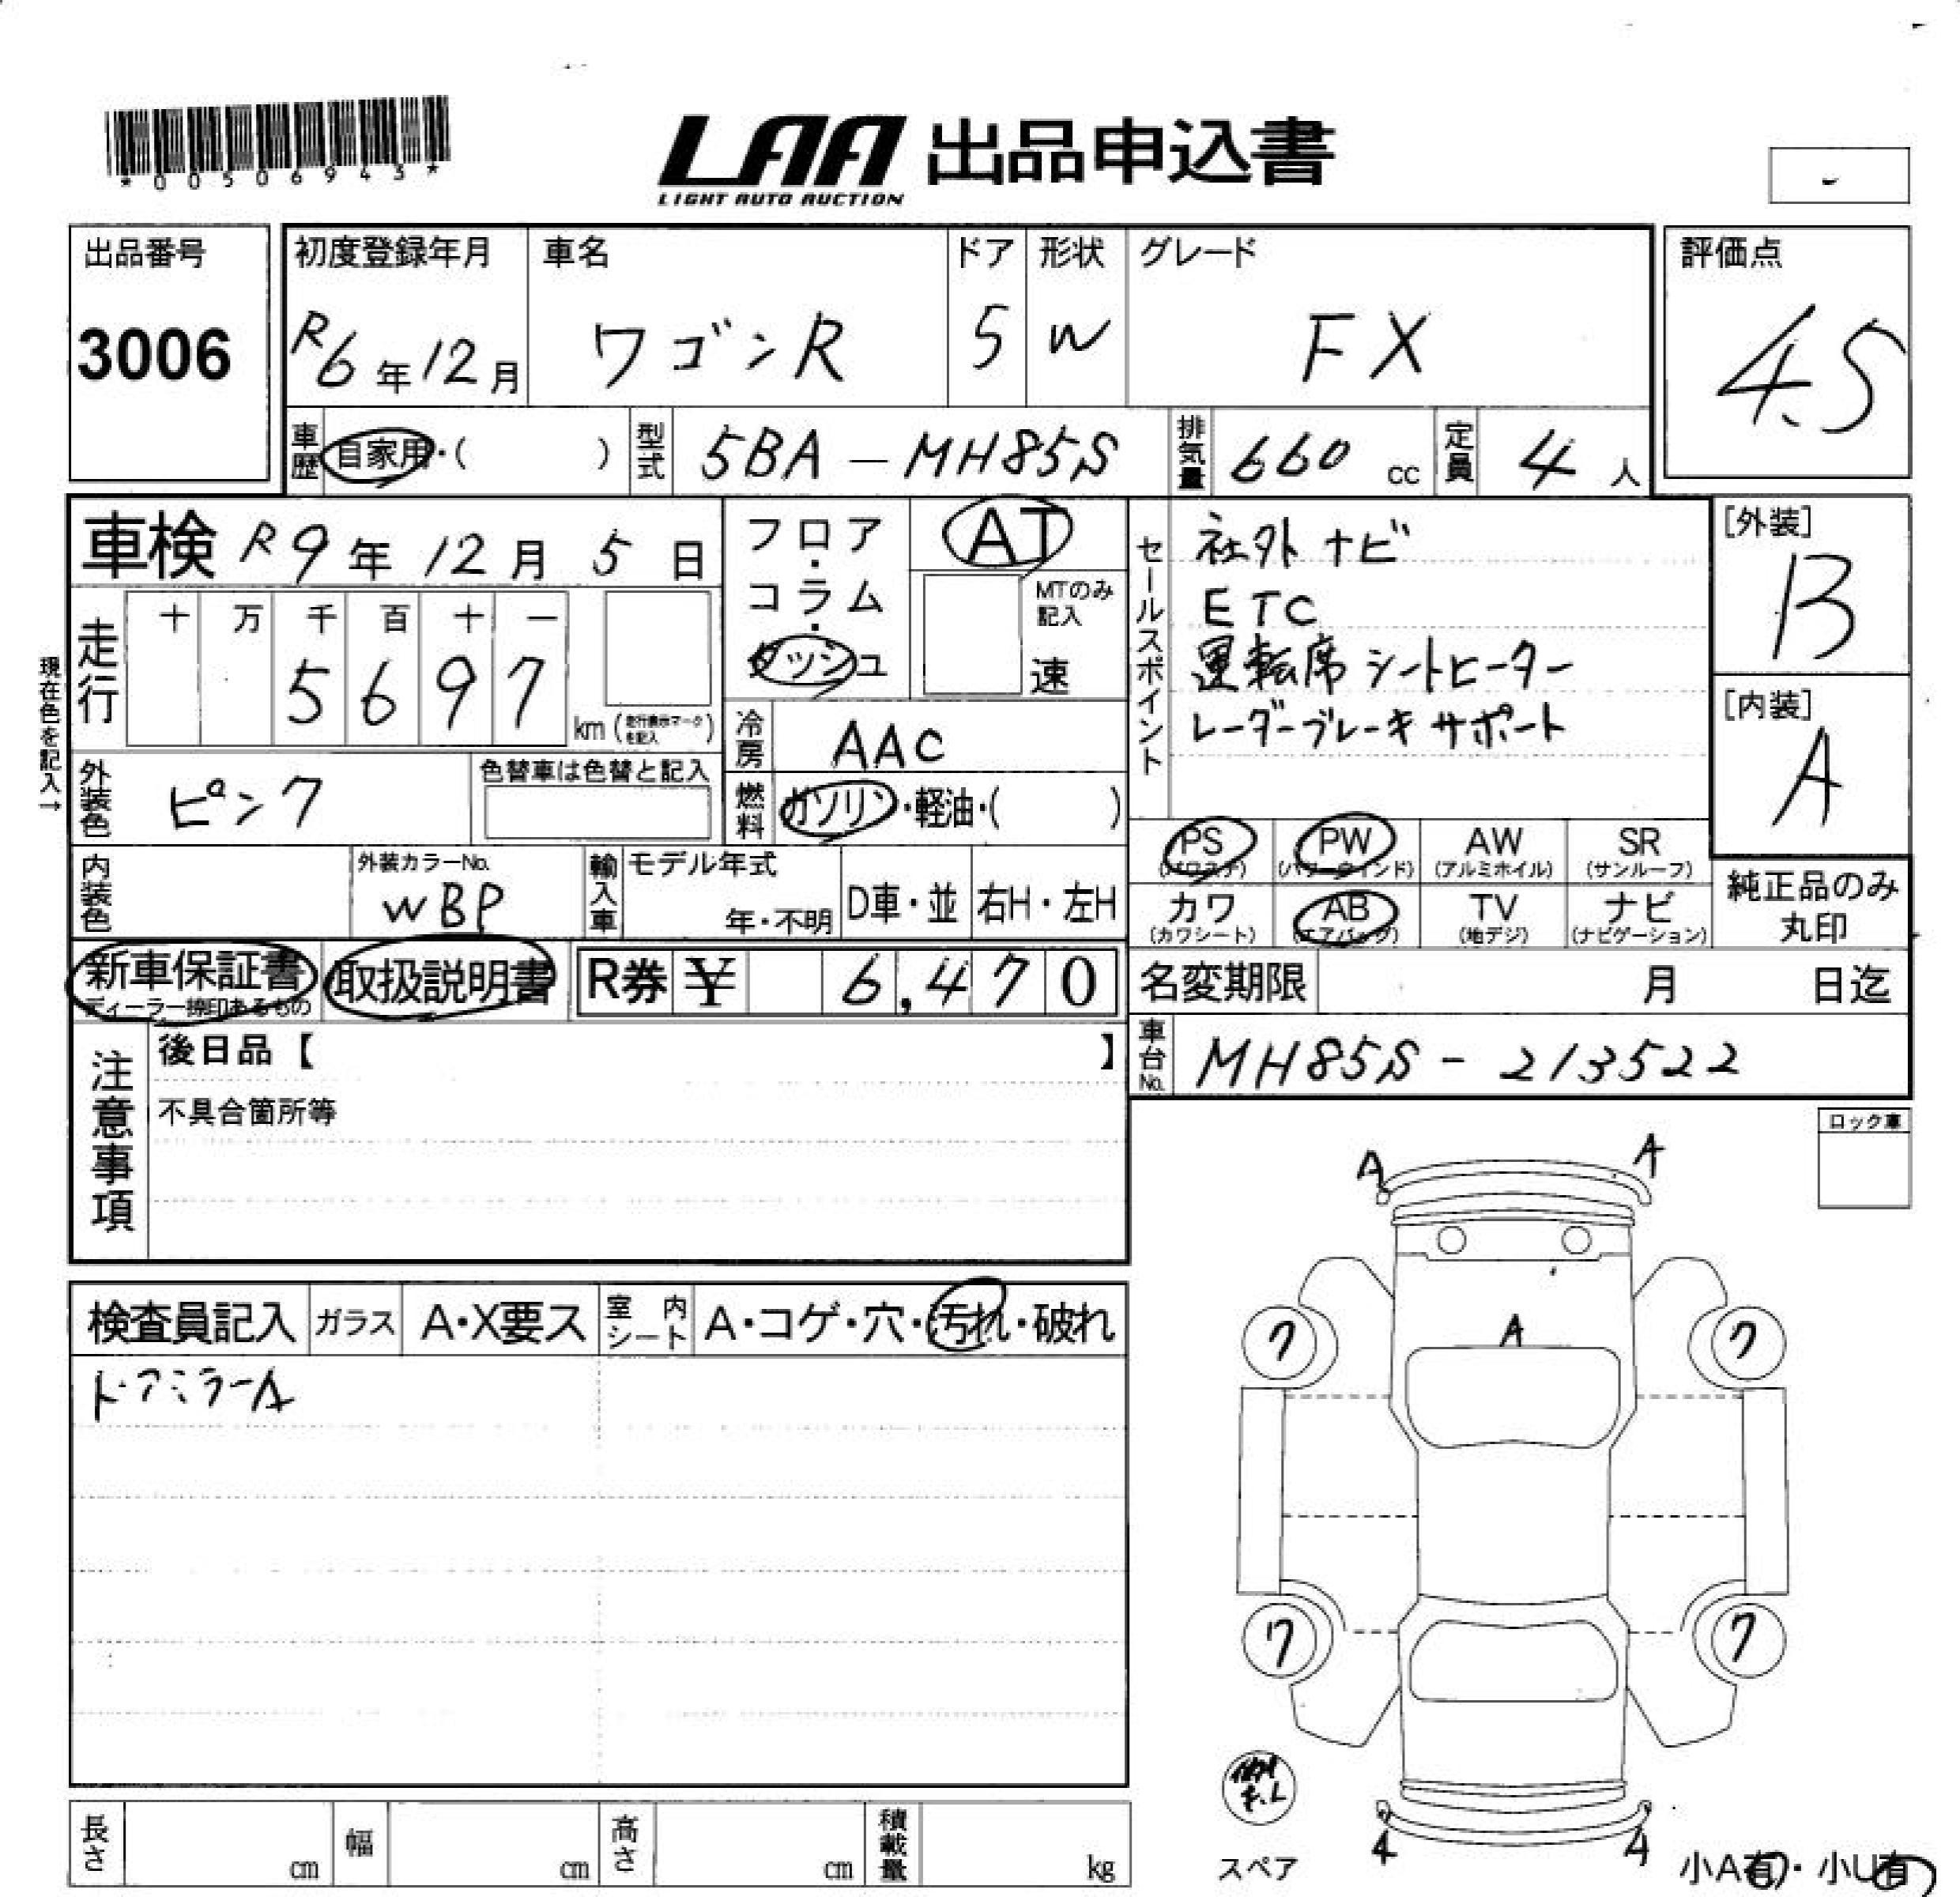 *00506943*
LAA 出品申込書
LIGHT AUTO AUCTION
出品番号
3006
初度登録年月
R6年12月
車名
ワゴンR
ドア
5
形状
W
グレード
FX
評価点
4.5
車歴 自家用・( )
型式 5BA-MH85S
排気量 660 cc
定員 4 人
車検 R9年12月5日
フロア・コラム・ダッシュ
AT
MTのみ記入
速
セールスポイント
社外ナビ
ETC
運転席シートヒーター
レーダーブレーキサポート
[外装]
B
[内装]
A
現在色を記入→
走行
十 万 千 百 十 一
5 6 9 7
km (走行表示マークを記入)
冷房 AAC
外装色 ピンク
色替車は色替と記入
燃料 ガソリン・軽油・( )
PS (パワステ)
PW (パワーウィンド)
AW (アルミホイル)
SR (サンルーフ)
カワ (カワシート)
AB (エアバッグ)
TV (地デジ)
ナビ (ナビゲーション)
純正品のみ
丸印
内装色
外装カラーNo.
WBP
輸入車
モデル年式
年・不明
D車・並
右H・左H
新車保証書
ディーラー捺印あるもの
取扱説明書
R券 ¥ 6,470
名変期限 月 日迄
車台No. MH85S-213522
注意事項
後日品【 】
不具合箇所等
ロック車
A A
A
7 7
7 7
4 4
検査員記入
ガラス
A・X要ス
室内シート
A・コゲ・穴・汚れ・破れ
ドアミラーA
スペア
小A有・小U有
長さ cm
幅 cm
高さ cm
積載量 kg